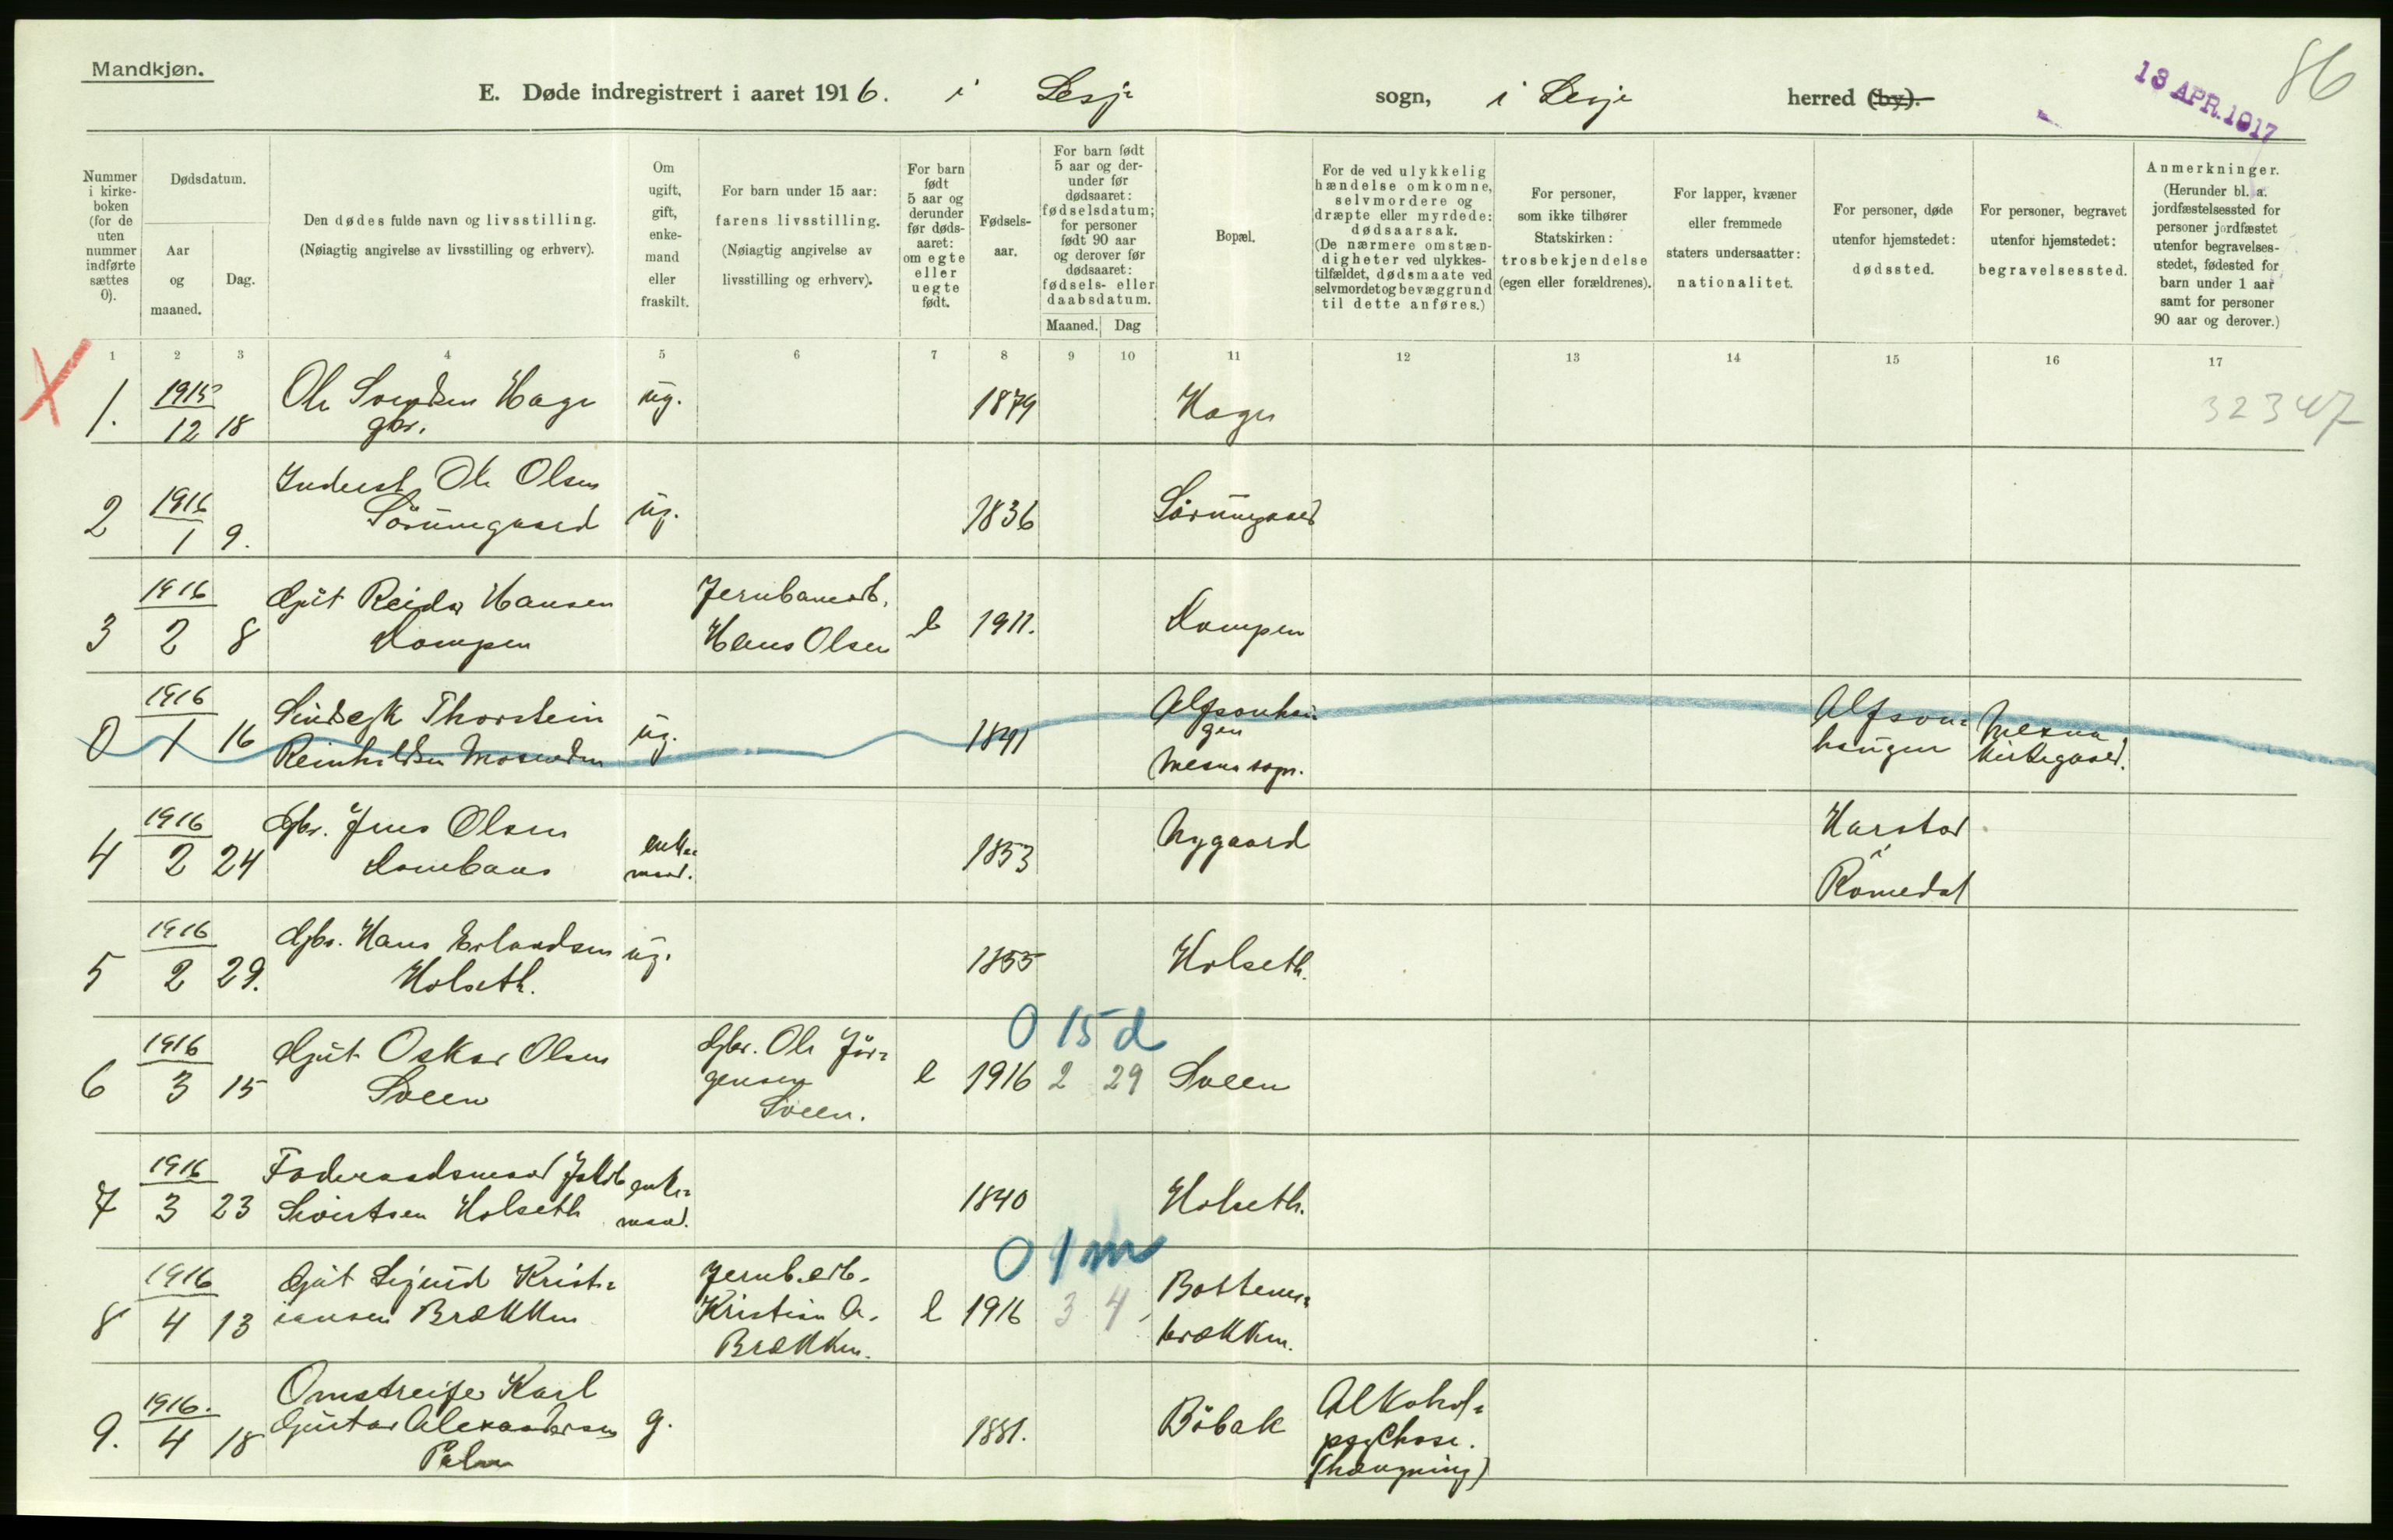 Mandkjøn.
E. Døde indregistrert i aaret 1916. i Lesje sogn, i Lesje herred (by).
13 APR. 1917
86
Nummer i kirkeboken (for de uten nummer indførte sættes 0).
Dødsdatum.
Aar og maaned.
Dag.
Den dødes fulde navn og livsstilling.
(Nøiagtig angivelse av livsstilling og erhverv).
Om ugift, gift, enkemand eller fraskilt.
For barn under 15 aar: farens livsstilling.
(Nøiagtig angivelse av livsstilling og erhverv).
For barn født 5 aar og derunder før dødsaaret: om egte eller uegte født.
Fødselsaar.
For barn født 5 aar og derunder før dødsaaret: fødselsdatum; for personer født 90 aar og derover før dødsaaret: fødsels- eller daabsdatum.
Maaned. Dag
Bopæl.
For de ved ulykkelig hændelse omkomne, selvmordere og dræpte eller myrdede: dødsaarsak.
(De nærmere omstændigheter ved ulykkestilfældet, dødsmaate ved selvmordet og bevæggrund til dette anføres.)
For personer, som ikke tilhører Statskirken: trosbekjendelse (egen eller forældrenes).
For lapper, kvæner eller fremmede staters undersaatter: nationalitet.
For personer, døde utenfor hjemstedet: dødssted.
For personer, begravet utenfor hjemstedet: begravelsessted.
Anmerkninger.
(Herunder bl. a. jordfæstelsessted for personer jordfæstet utenfor begravelsesstedet, fødested for barn under 1 aar samt for personer 90 aar og derover.)
1 2 3 4 5 6 7 8 9 10 11 12 13 14 15 16 17
X
1. 1915 12 18 Ole Svendsen Hage gbr. ug. 1879 Hage
32347
2 1916 1 9. Inderst Ole Olsen Sörumgaard ug. 1836 Sörumgaard
3 1916 2 8 Gut Reidar Hansen Kampen Jernbanearb. Hans Olsen e 1911. Kampen
0 1916 1 16 Thorstein ug. 1891 Mesna sogn. Mesna kirkegaard.
4 1916 2 24 Gbr. Jens Olsen Dombaas enkemand. 1853 Nygaard Harstad i Romedal
5 1916 2 29. Gbr. Hans Erlandsen Holseth. ug. 1855 Holseth.
0 15 d
6 1916 3 15 Gut Oskar Olsen Sveen Gbr. Ole Jörgensen Sveen. e 1916 2 29 Sveen
7 1916 3 23 Föderaadsmand Jakob Sivertsen Holseth enkemand. 1840 Holseth.
0 1 m
8 1916 4 13 Gut Sigurd Kristiansen Brækken Jernb.arb. Kristian A. Brækken. e 1916 3 4 Bottemsbrækken.
9. 1916. 4 18 Omstreifer Karl Gustav Alexandersen Palm g. 1881. Böbak Alkoholpsychose. (hængning)